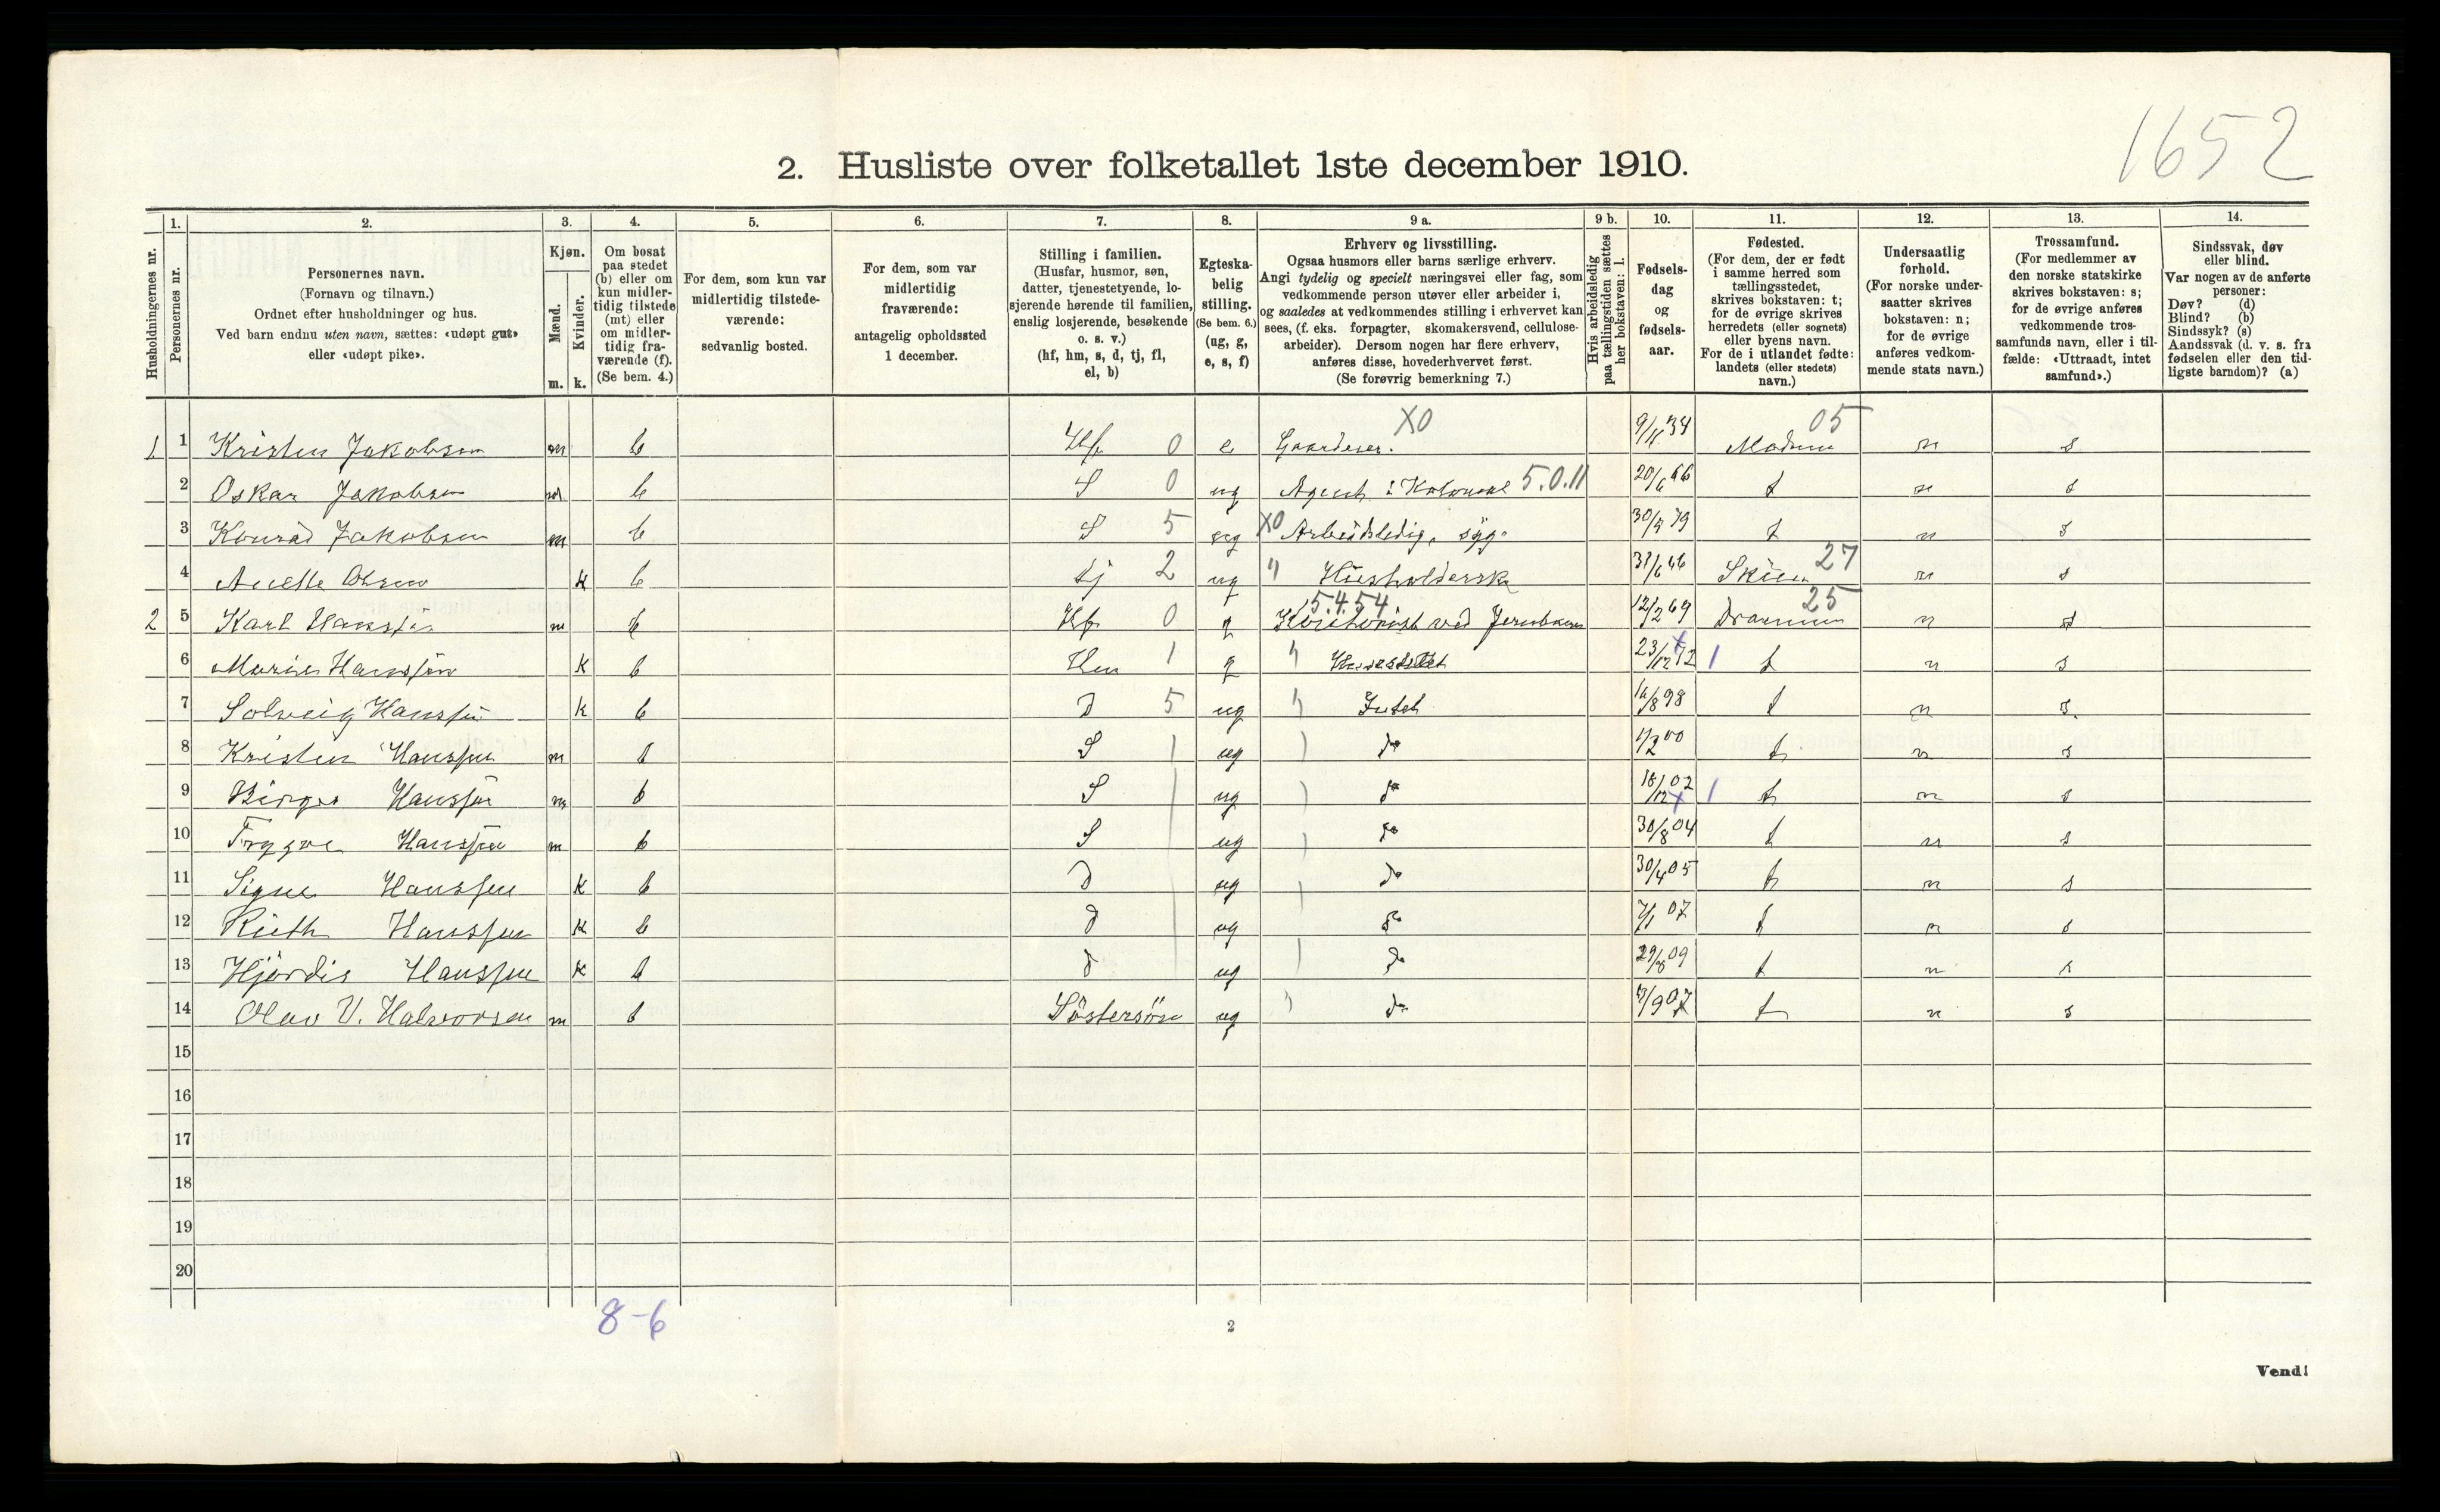 1652
2. Husliste over folketallet 1ste december 1910.
Husholdningernes nr.
1. Personernes nr.
2. Personernes navn.
(Fornavn og tilnavn.)
Ordnet efter husholdninger og hus.
Ved barn endnu uten navn, sættes: «udøpt gut»
eller «udøpt pike».
3. Kjøn.
Mænd. m.
Kvinder. k.
4. Om bosat
paa stedet
(b) eller om
kun midler-
tidig tilstede
(mt) eller
om midler-
tidig fra-
værende (f).
(Se bem. 4.)
5. For dem, som kun var
midlertidig tilstede-
værende:
sedvanlig bosted.
6. For dem, som var
midlertidig
fraværende:
antagelig opholdssted
1 december.
7. Stilling i familien.
(Husfar, husmor, søn,
datter, tjenestetyende, lo-
sjerende hørende til familien,
enslig losjerende, besøkende
o. s. v.)
(hf, hm, s, d, tj, fl,
el, b)
8. Egteska-
belig
stilling.
(Se bem. 6.)
(ug, g,
e, s, f)
9 a. Erhverv og livsstilling.
Ogsaa husmors eller barns særlige erhverv.
Angi tydelig og specielt næringsvei eller fag, som
vedkommende person utøver eller arbeider i,
og saaledes at vedkommendes stilling i erhvervet kan
sees, (f. eks. forpagter, skomakersvend, cellulose-
arbeider). Dersom nogen har flere erhverv,
anføres disse, hovederhvervet først.
(Se forøvrig bemerkning 7.)
9 b. Hvis arbeidsledig
paa tællingstiden sættes
her bokstaven: l.
10. Fødsels-
dag
og
fødsels-
aar.
11. Fødested.
(For dem, der er født
i samme herred som
tællingsstedet,
skrives bokstaven: t;
for de øvrige skrives
herredets (eller sognets)
eller byens navn.
For de i utlandet fødte:
landets (eller stedets)
navn.)
12. Undersaatlig
forhold.
(For norske under-
saatter skrives
bokstaven: n;
for de øvrige
anføres vedkom-
mende stats navn.)
13. Trossamfund.
(For medlemmer av
den norske statskirke
skrives bokstaven: s;
for de øvrige anføres
vedkommende tros-
samfunds navn, eller i til-
fælde: «Uttraadt, intet
samfund».)
14. Sindssvak, døv
eller blind.
Var nogen av de anførte
personer:
Døv? (d)
Blind? (b)
Sindssyk? (s)
Aandssvak (d. v. s. fra
fødselen eller den tid-
ligste barndom)? (a)
X0 05
1 1 Kristen Jakobsen m b Hf 0 e Gaardeier. Modum n s
2 Oskar Jakobsen m b S 0 ug Agent i Kolonial 5.0.11 20/6 66 t n s
3 Konrad Jakobsen m b S 5 ug X0 Arbeidsledig, syg. 79 t n s
27
4 Olsen k b tj 2 ug " Husholderske Skien n s
5.4.54 25
2 5 Karl Hanssen m b Hf 0 g Kontorist ved Jernbanen 12/2 69 Drammen n s
6 Marie Hanssen k b Hm 1 g " Husstellet 23/12 72 1 t n s
7 Solveig Hanssen k b D 5 ug " Intet 98 t n s.
8 Kristen Hanssen m b S 1 ug " do 00 t n s
9 Birger Hanssen m b S ug do 18/12 02 1 t n s
10 Trygve Hanssen m b S ug do 30/8 04 t n s
11 Signe Hanssen k b D ug do 30/4 05 t n s
12 Ruth Hanssen k b D ug do 7/1 07 t n s
13 Hjördis Hanssen k b D ug do 29/8 09 t n s
14 Olav V. Halvorsen m b Söstersön ug " do t n s
15
16
17
18
19
20
8-6
2
Vend!